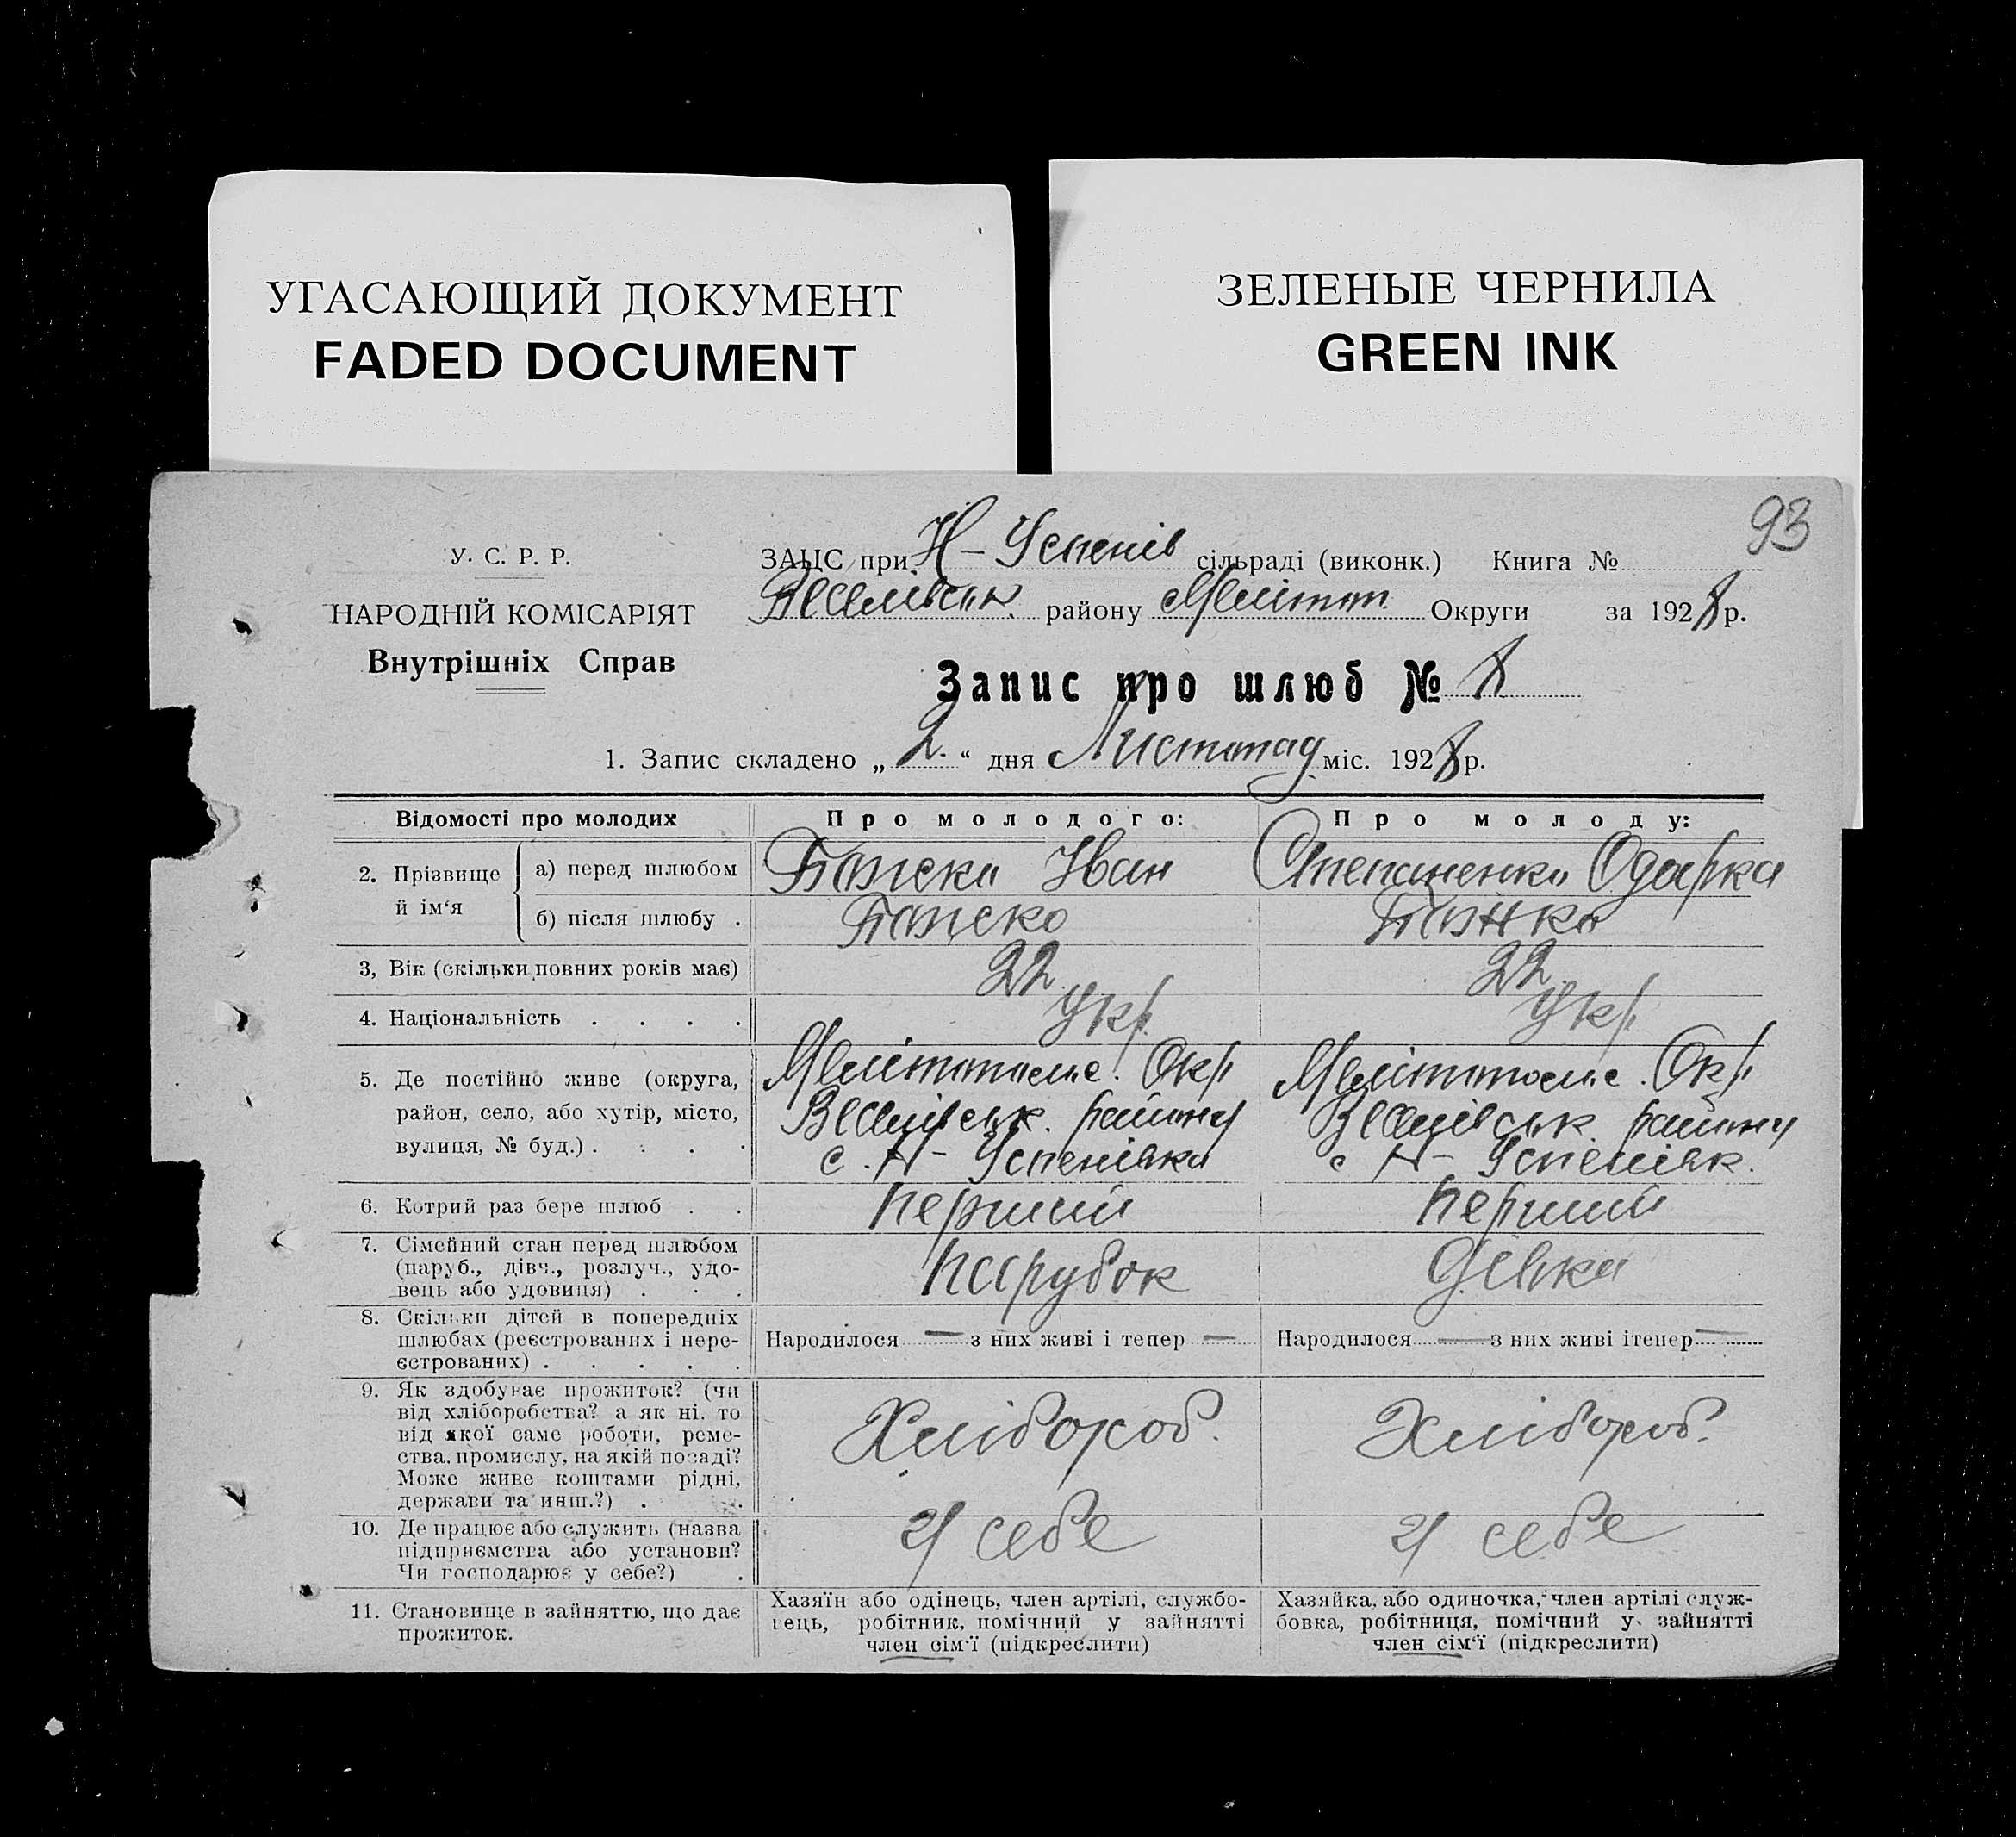 УГАСАЮЩИЙ ДОКУМЕНТ
FADED DOCUMENT
ЗЕЛЕНЫЕ ЧЕРНИЛА
GREEN INK
93
У. С. Р. Р.
НАРОДНІЙ КОМІСАРІЯТ
Внутрішніх Справ
ЗАЦС при Н-Успенів сільраді (виконк.) Книга №
Веселівськ. району Меліт. Округи за 1928 р.
Запис про шлюб № 8
1. Запис складено „ 2. “ дня Листопад міс. 1928 р.
Відомості про молодих
Про молодого:
Про молоду:
2. Прізвище й ім‘я
а) перед шлюбом
Іван
Степаненко Одарка
б) після шлюбу .
3, Вік (скільки повних років має)
22
22
4. Національність . . . .
Укр.
Укр.
5. Де постійно живе (округа,
район, село, або хутір, місто,
вулиця, № буд.) . . . .
Мелітопольс. Окр.
Веселівськ. району
с. Н-Успенівка
Мелітопольс. Окр.
Веселівськ. району
с Н-Успенівк.
6. Котрий раз бере шлюб . .
перший
перший
7. Сімейний стан перед шлюбом
(паруб., дівч., розлуч., удо-
вець або удовиця) . . .
парубок
дівка
8. Скільки дітей в попередніх
шлюбах (реєстрованих і нере-
єстрованих) . . . . .
Народилося — з них живі і тепер —
Народилося — з них живі ітепер —
9. Як здобуває прожиток? (чи
від хліборобства? а як ні, то
від якої саме роботи, реме-
ства, промислу, на якій посаді?
Може живе коштами рідні,
держави та инш.?) . .
Хлібороб.
Хлібороб.
10. Де працює або служить (назва
підприємства або установи?
Чи господарює у себе?) .
У себе
У себе
11. Становище в зайняттю, що дає
прожиток.
Хазяїн або одінець, член артілі, службо-
вець, робітник, помічний у зайнятті
член сім‘ї (підкреслити)
Хазяйка, або одиночка, член артілі служ-
бовка, робітниця, помічний у зайнятті
член сім‘ї (підкреслити)